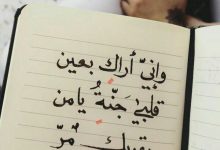 وإنيّ أراك بعين
قلبيْ جَنةُ يامن
بقربك مُرّ